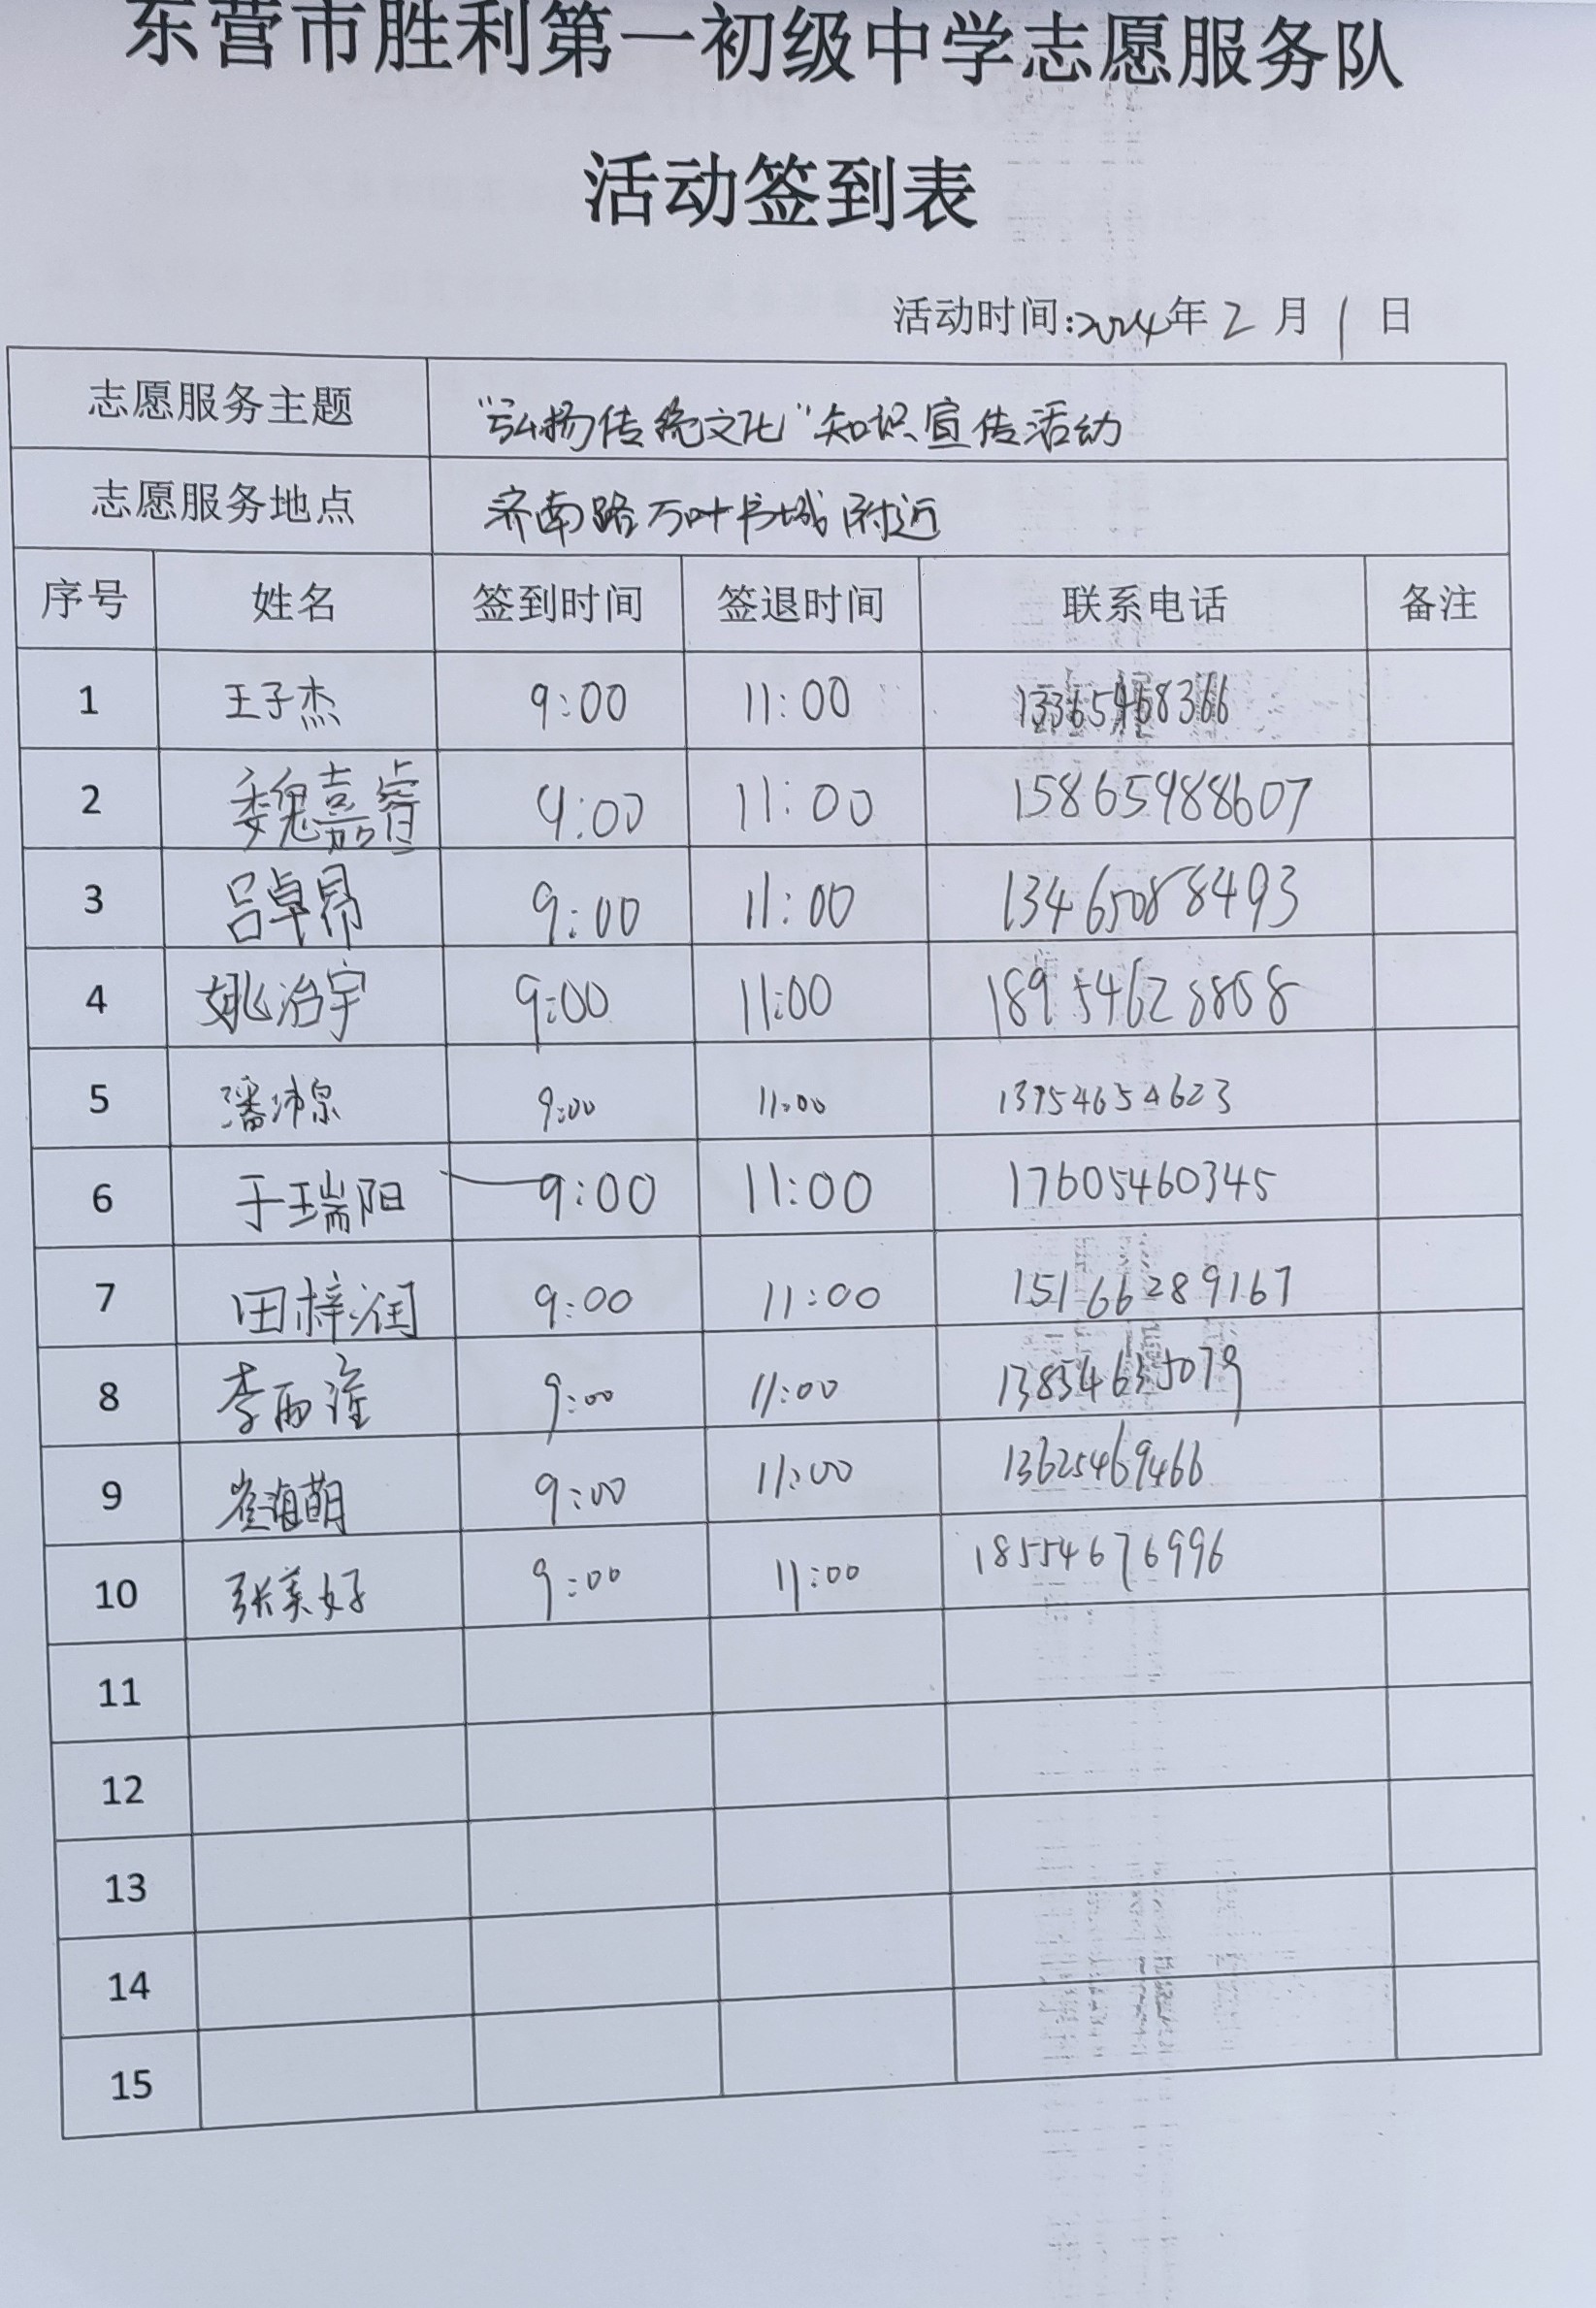 东营市胜利第一初级中学志愿服务队
活动签到表
活动时间:2024年2月1日
志愿服务主题 "弘扬传统文化"知识宣传活动
志愿服务地点 济南路万叶书城附近
序号 姓名 签到时间 签退时间 联系电话 备注
1 王子杰 9:00 11:00 13365468366
2 魏嘉睿 9:00 11:00 15865988607
3 吕卓昂 9:00 11:00 13465088493
4 姚治宇 9:00 11:00 18954628808
5 潘沛泉 9:00 11:00 13954654623
6 于瑞阳 9:00 11:00 17605460345
7 田梓润 9:00 11:00 15166289167
8 李雨淮 9:00 11:00 13854635079
9 崔海萌 9:00 11:00 13625469466
10 张美好 9:00 11:00 18554676996
11
12
13
14
15